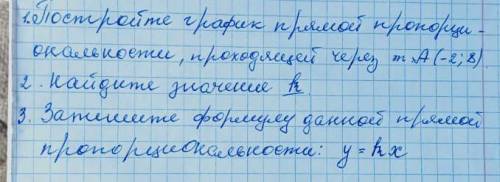 1. Постройте график прямой пропорци-
ональности, проходящей через т. А (-2; 8)
2. Найдите значение k.
3. Запишите формулу данной прямой
пропорциональности: y = kx